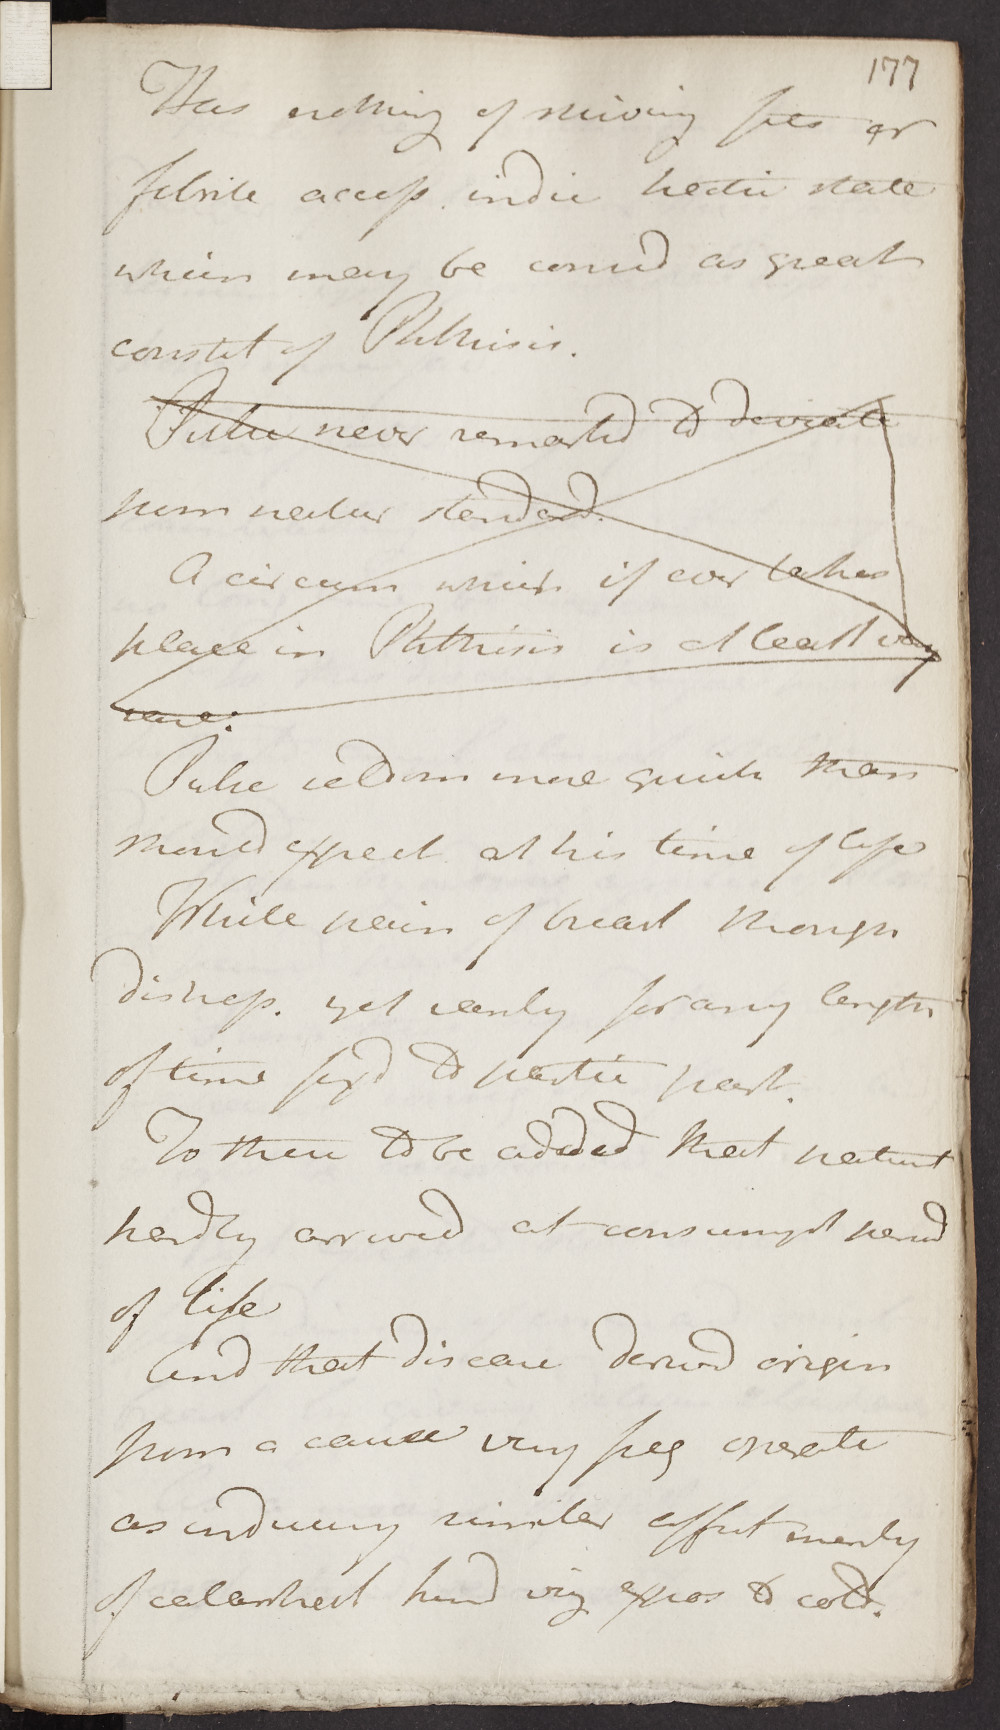 177
Has nothing of shivring fits or
febrile access. indic hectic state
which may be consid as great
constit of Phthisis.
Pulse never remarkd to deviate
from natur standard.
A circum which if ever takes
place in Phthisis is at least very
rare.
Pulse seldom more quick than
should expect at his time of life
While pain of breast though
distress. yet rarely for any length
of time fixd to partic part.
To these to be added that patient
hardly arrived at consumpt period
of life
And that disease derivd origin
from a cause very freq operate
as inducing similar affect merely
of catarrhal kind viz expos to cold.